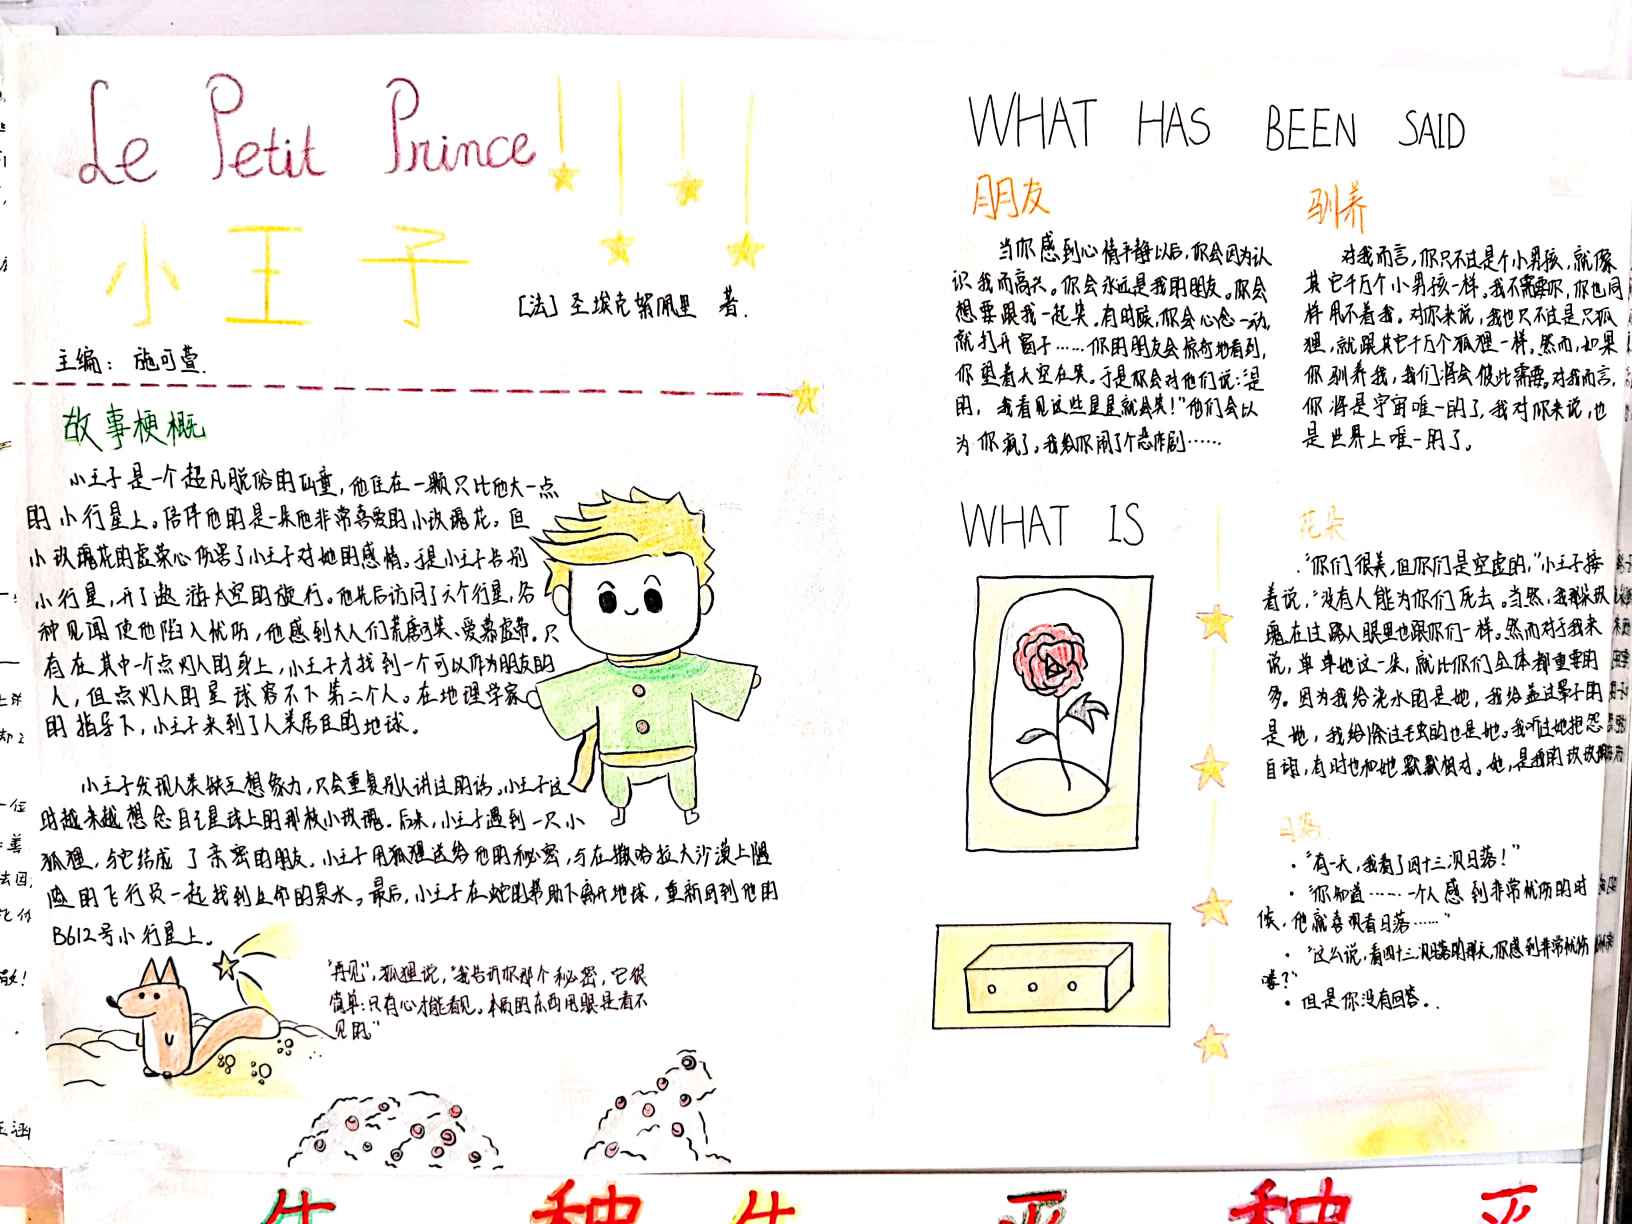 Le Petit Prince
小王子
[法] 圣埃克絮佩里 著.
主编: 施可萱.
故事梗概
小王子是一个超凡脱俗的仙童,他住在一颗只比他大一点
的小行星上。陪伴他的是一朵他非常喜爱的小玫瑰花。但
小玫瑰花的虚荣心伤害了小王子对她的感情。于是小王子告别
小行星,开了遨游太空的旅行。他先后访问了六个行星,各
种见闻使他陷入忧伤,他感到大人们荒唐可笑、爱慕虚荣。只
有在其中一个点灯人的身上,小王子才找到一个可以作为朋友的
人,但点灯人的星球容不下第二个人。在地理学家
的指导下,小王子来到了人类居住的地球。
小王子发现人类缺乏想象力,只会重复别人讲过的话。小王子这
时越来越想念自己星球上的那枝小玫瑰。后来,小王子遇到一只小
狐狸,与它结成了亲密的朋友。小王子用狐狸送给他的秘密,与在撒哈拉大沙漠上遇
险的飞行员一起找到生命的泉水。最后,小王子在蛇的帮助下离开地球,重新回到他的
B612号小行星上。
"再见",狐狸说,"我告诉你那个秘密,它很
简单:只有心才能看见。本质的东西用眼是看不
见的。"
WHAT HAS BEEN SAID
朋友
当你感到心情平静以后,你会因为认
识我而高兴。你会永远是我的朋友。你会
想要跟我一起笑。有时候,你会心念一动,
就打开窗子……你的朋友会惊奇地看到,
你望着天空在笑。于是你会对他们说:"是
的,我看见这些星星就会笑!"他们会以
为你疯了。我给你闹了个恶作剧……
驯养
对我而言,你只不过是个小男孩,就像
其它千万个小男孩一样。我不需要你,你也同
样用不着我。对你来说,我也只不过是只狐
狸,就跟其它千万个狐狸一样。然而,如果
你驯养我,我们将会彼此需要。对我而言,
你将是宇宙唯一的了,我对你来说,也
是世界上唯一的了。
WHAT IS
花朵
"你们很美,但你们是空虚的,"小王子接
着说,"没有人能为你们死去。当然,我那朵玫
瑰在过路人眼里也跟你们一样。然而对于我来
说,单单她这一朵,就比你们全体都重要的
多。因为我给浇水的是她,我给盖过罩子的
是她,我给除过毛虫的也是她。我听过她抱怨
自诩,有时也和她默默相对。她,是我的玫瑰
日落.
· "有一天,我看了四十三次日落!"
· "你知道……一个人感到非常忧伤的时
候,他就喜欢看日落……"
· "这么说,看四十三次日落的那天,你感到非常忧伤
喽?"
· 但是你没有回答..